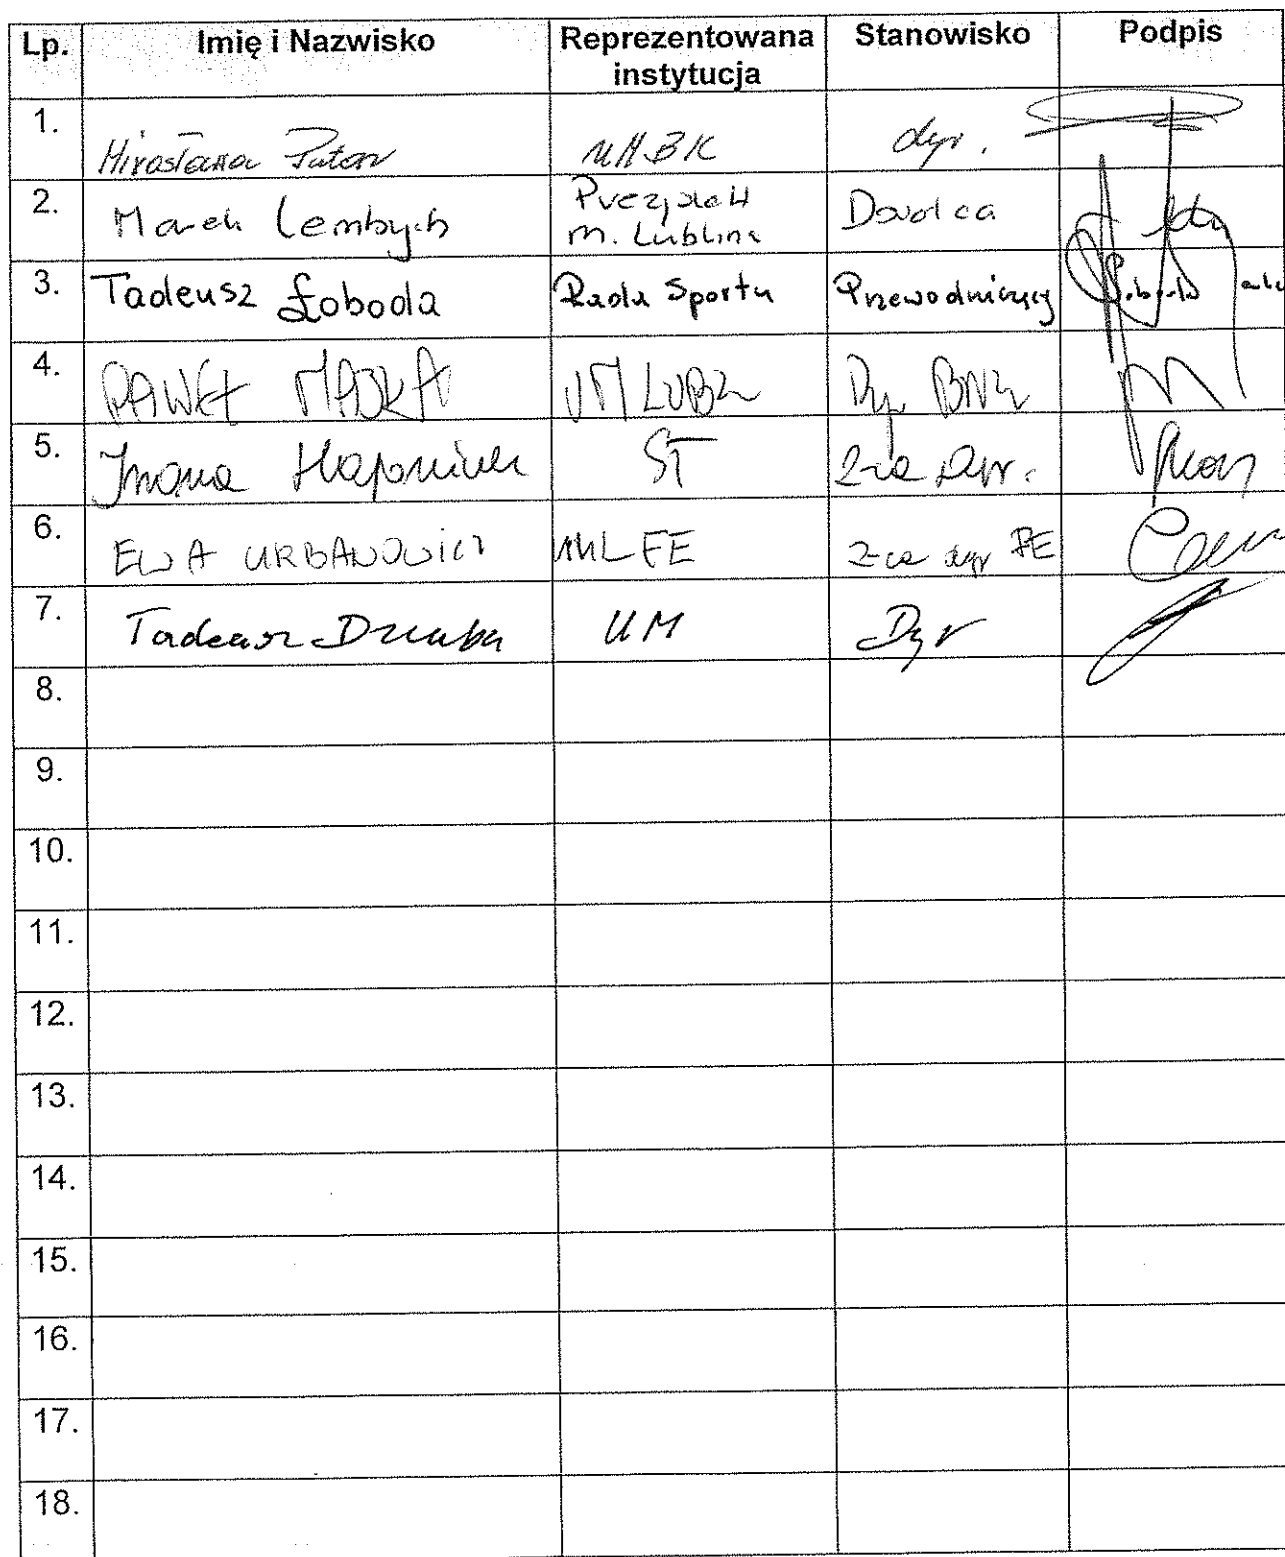 Lp. Imię i Nazwisko Reprezentowana instytucja Stanowisko Podpis
1. Mirosława Puton UMBK dyr.
2. Marek Lembrych Prezydent m. Lublina Doradca
3. Tadeusz Łoboda Rada Sportu Przewodniczący
4. PAWEŁ MAJKA UM LUBL
5. Iwona Haponiuk ST z-ca Dyr.
6. EWA URBANOWICZ UML FE z-ca dyr FE
7. Tadeusz Dziuba UM Dyr
8.
9.
10.
11.
12.
13.
14.
15.
16.
17.
18.